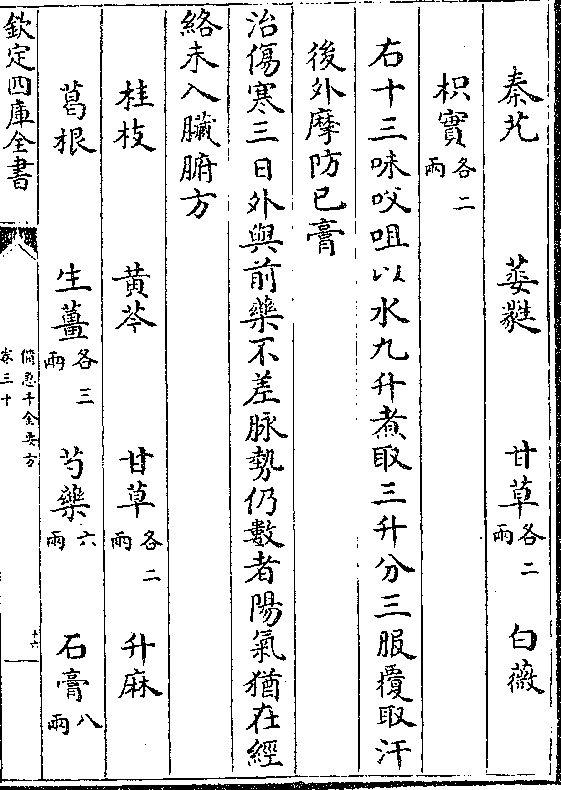 秦艽　萎蕤　甘草各二兩　白薇
枳實各二兩
右十三味㕮咀以水九升煮取三升分三服覆取汗
後外摩防已膏
治傷寒三日外與前藥不差脉勢仍數者陽氣猶在經
絡未入臟腑方
桂枝　黄芩　甘草各二兩　升麻
葛根　生薑各三兩　芍藥六兩　石膏八兩
欽定四庫全書
備急千金要方
卷三十
十六